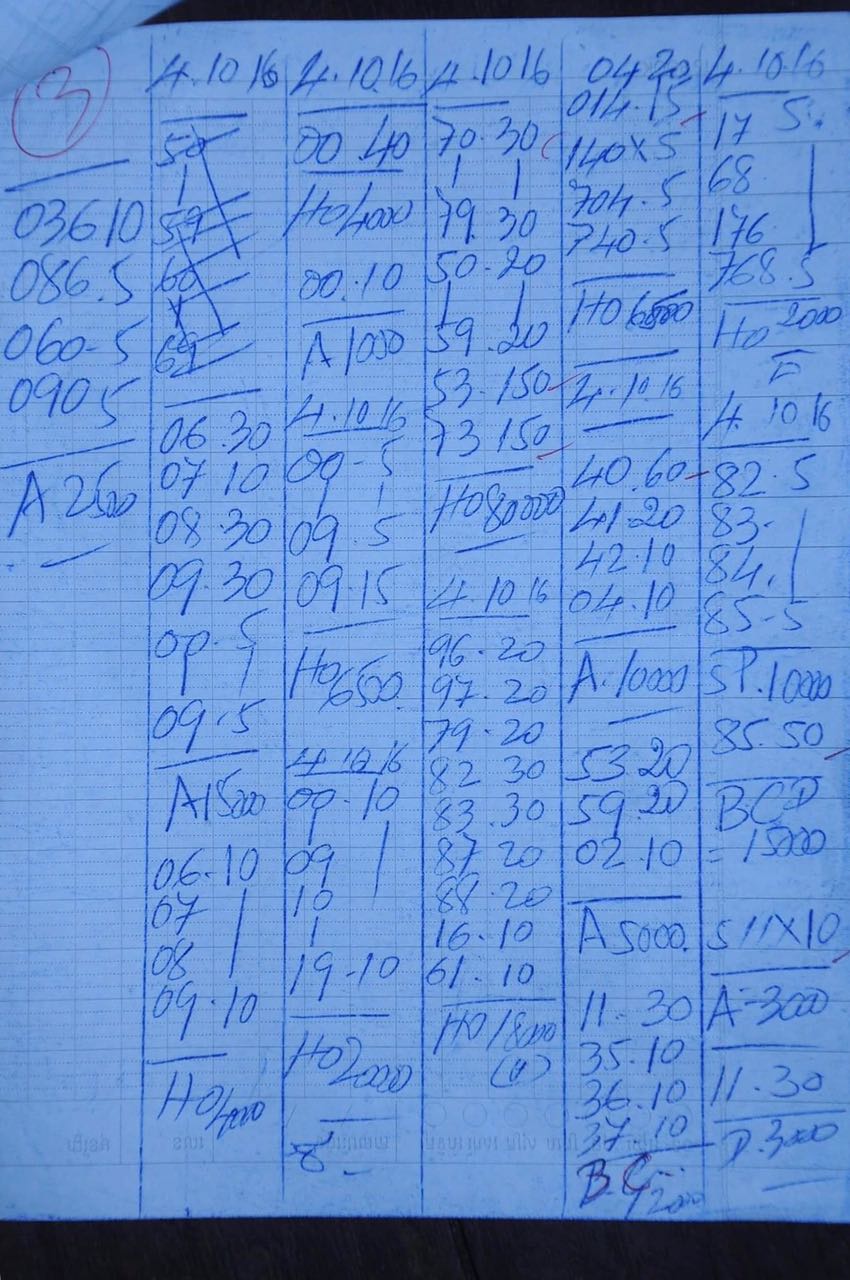 3
036 10
086.5
060-5
090 5
A 2500
4.10 16
50
59
60
69
06.30
07 10
08.30
09.30
00.5
09.5
A15000
06.10
07
08
09.10
Ho 4000
4.10.16
00.40
Ho 4000
00.10
A 1000
4.10 16
00-5
09.5
09.15
Ho 6500
4.10 16
00-10
09
10
19-10
Ho 20000
4.10 16
70.30
79.30
50.20
59.20
53.150
73 150
Ho 80000
4.10 16
96.20
97.20
79.20
82 30
83.30
87 20
88.20
16.10
61.10
HO 18000
(4)
04 20
014.15
140X5
704.5
740.5
Ho 6500
4.10.16
40.60
41.20
42.10
04.10
A.10000
53.20
59.20
02.10
A 5000
11.30
35.10
36.10
37.10
B C
12000
4.10.16
17 5.
68
176
768.5
Ho 2000
4.10 16
82.5
83.
84.
85-5
SP.10000
85.50
BCD
=15000
511X10
A-3000
11.30
D.3000